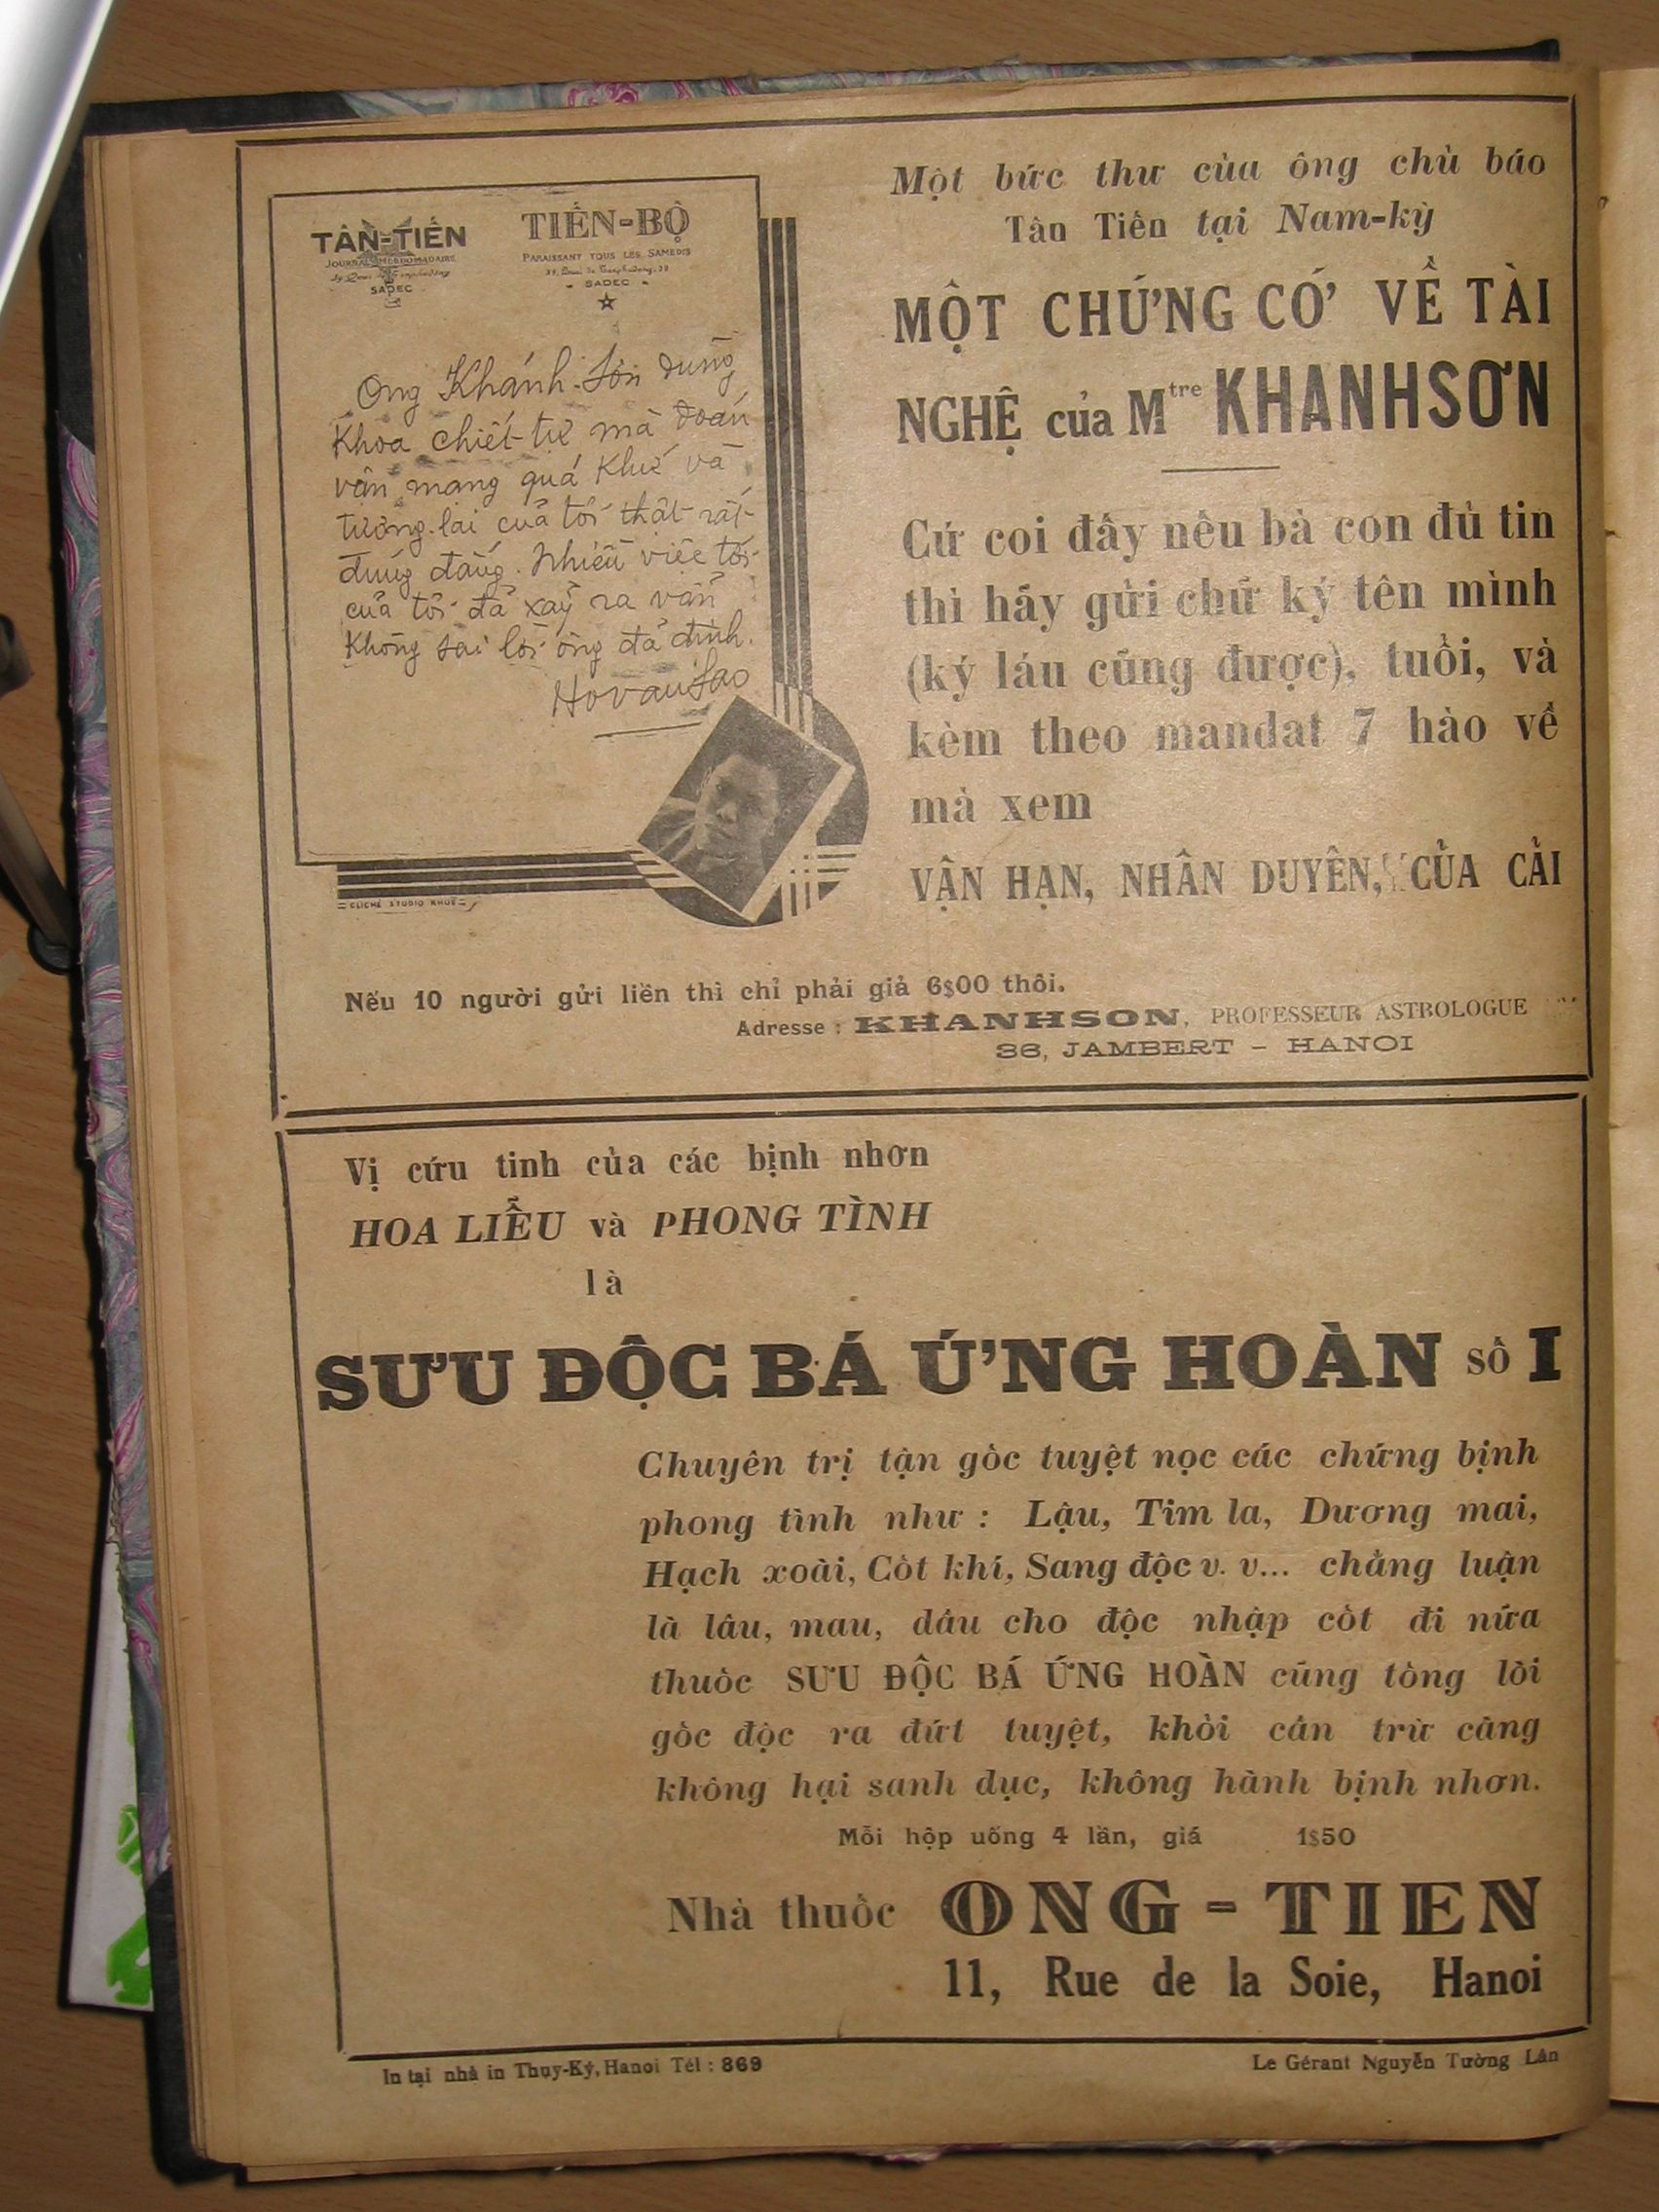 TÂN-TIẾN
JOURNAL HEBDOMADAIRE
SADEC
TIẾN-BỘ
PARAISSANT TOUS LES SAMEDIS
SADEC
Ong Khánh-Sơn dùng
khoa chiết-tự mà đoán
vận mạng quá khứ và
tương-lai của tôi thật rất
đúng đắng. Nhiều việc tới
của tôi đã xảy ra vẫn
không sai lời ông đã định.
Hovansao
CLICHÉ STUDIO KHUÊ
Một bức thư của ông chủ báo
Tân Tiến tại Nam-kỳ
MỘT CHỨNG CỚ VỀ TÀI
NGHỆ của Mtre KHANHSƠN
Cứ coi đấy nếu bà con đủ tin
thì hãy gửi chữ ký tên mình
(ký láu cũng được), tuổi, và
kèm theo mandat 7 hào về
mà xem
VẬN HẠN, NHÂN DUYÊN, CỦA CẢI
Nếu 10 người gửi liền thì chỉ phải giả 6$00 thôi.
Adresse : KHANHSON, PROFESSEUR ASTROLOGUE
36, JAMBERT - HANOI
Vị cứu tinh của các bịnh nhơn
HOA LIỄU và PHONG TÌNH
là
SƯU ĐỘC BÁ ỨNG HOÀN số I
Chuyên trị tận gốc tuyệt nọc các chứng bịnh
phong tình như : Lậu, Tim la, Dương mai,
Hạch xoài, Cốt khí, Sang độc v. v... chẳng luận
là lâu, mau, dầu cho độc nhập cốt đi nữa
thuốc SƯU ĐỘC BÁ ỨNG HOÀN cũng tống lòi
gốc độc ra đứt tuyệt, khỏi cần trừ căng
không hại sanh dục, không hành bịnh nhơn.
Mỗi hộp uống 4 lần, giá 1$50
Nhà thuốc ONG-TIEN
11, Rue de la Soie, Hanoi
In tại nhà in Thụy-Ký, Hanoi Tél : 869
Le Gérant Nguyễn Tường Lân